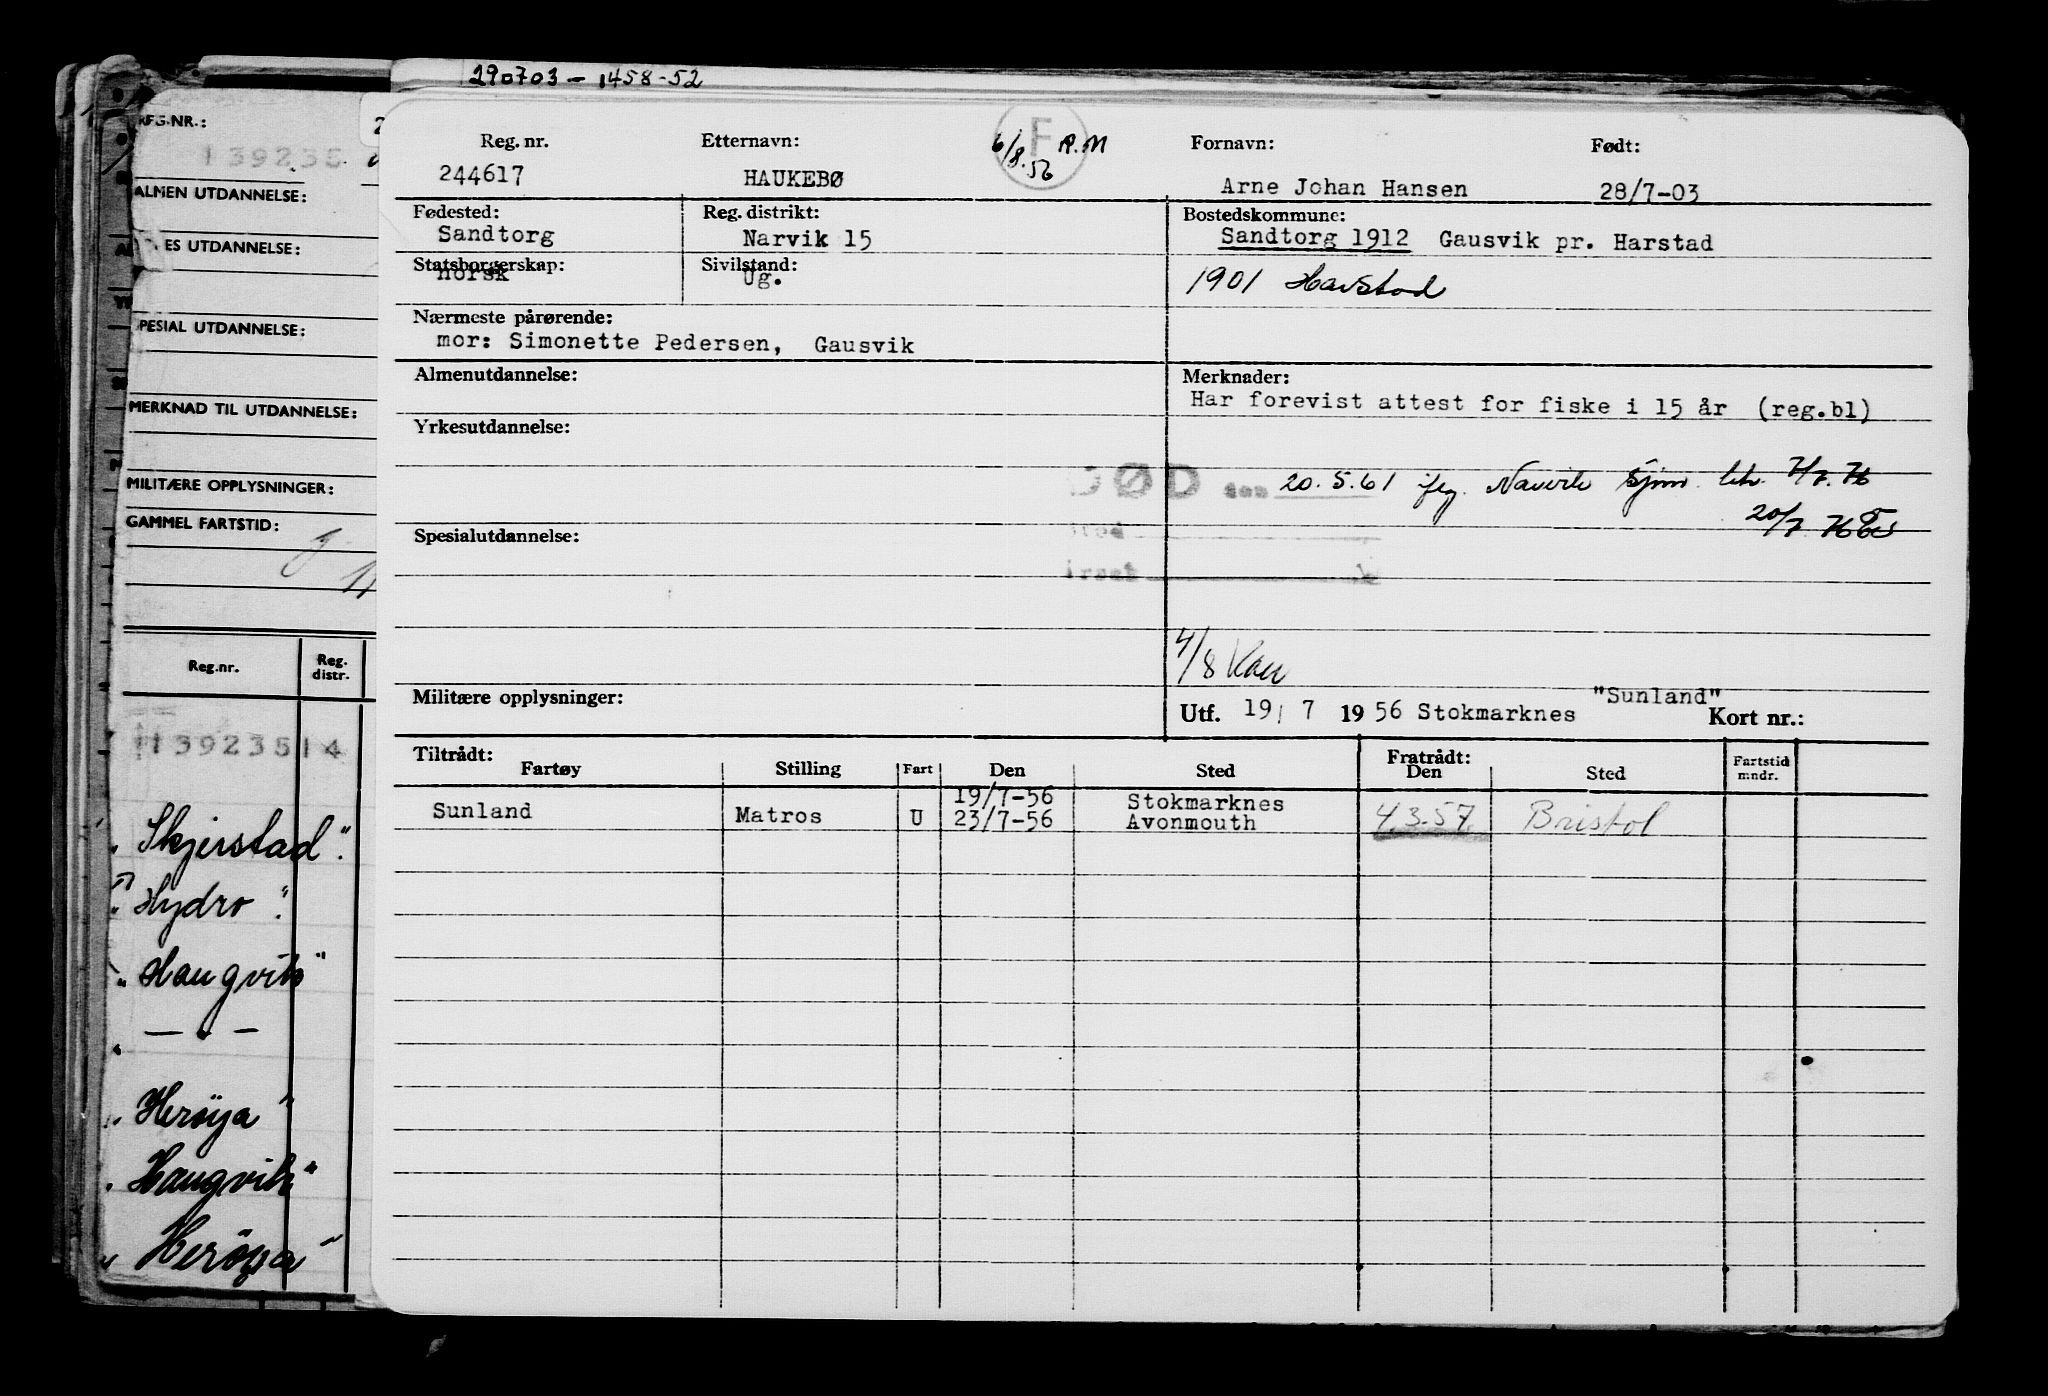 290703 - 1458-52
REG.NR.:
139235
ALMEN UTDANNELSE:
ES UTDANNELSE:
PESIAL UTDANNELSE:
MERKNAD TIL UTDANNELSE:
MILITÆRE OPPLYSNINGER:
GAMMEL FARTSTID:
Reg.nr. Reg. distr.
13923514
"Skjerstad".
"Hydro".
"Haugvik"
— " —
"Herøya"
"Haugvik"
"Herøya"
Reg. nr. Etternavn: F 6/8.56 R.M Fornavn: Født:
244617 HAUKEBØ Arne Johan Hansen 28/7-03
Fødested: Reg. distrikt: Bostedskommune:
Sandtorg Narvik 15 Sandtorg 1912 Gausvik pr. Harstad
Statsborgerskap: Sivilstand:
norsk Ug. 1901 Harstad
Nærmeste pårørende:
mor: Simonette Pedersen, Gausvik
Almenutdannelse: Merknader:
Har forevist attest for fiske i 15 år (reg.bl)
Yrkesutdannelse:
DØD den 20.5.61 iflg. Narvik Sjøm.
20/7
Sted
Spesialutdannelse:
Årsak
4/8
Militære opplysninger: "Sunland"
Utf. 19/ 7 1956 Stokmarknes Kort nr.:
Tiltrådt: Fratrådt:
Fartøy Stilling Fart Den Sted Den Sted Fartstid mndr.
19/7-56 Stokmarknes
Sunland Matros U 23/7-56 Avonmouth 4.3.57. Bristol